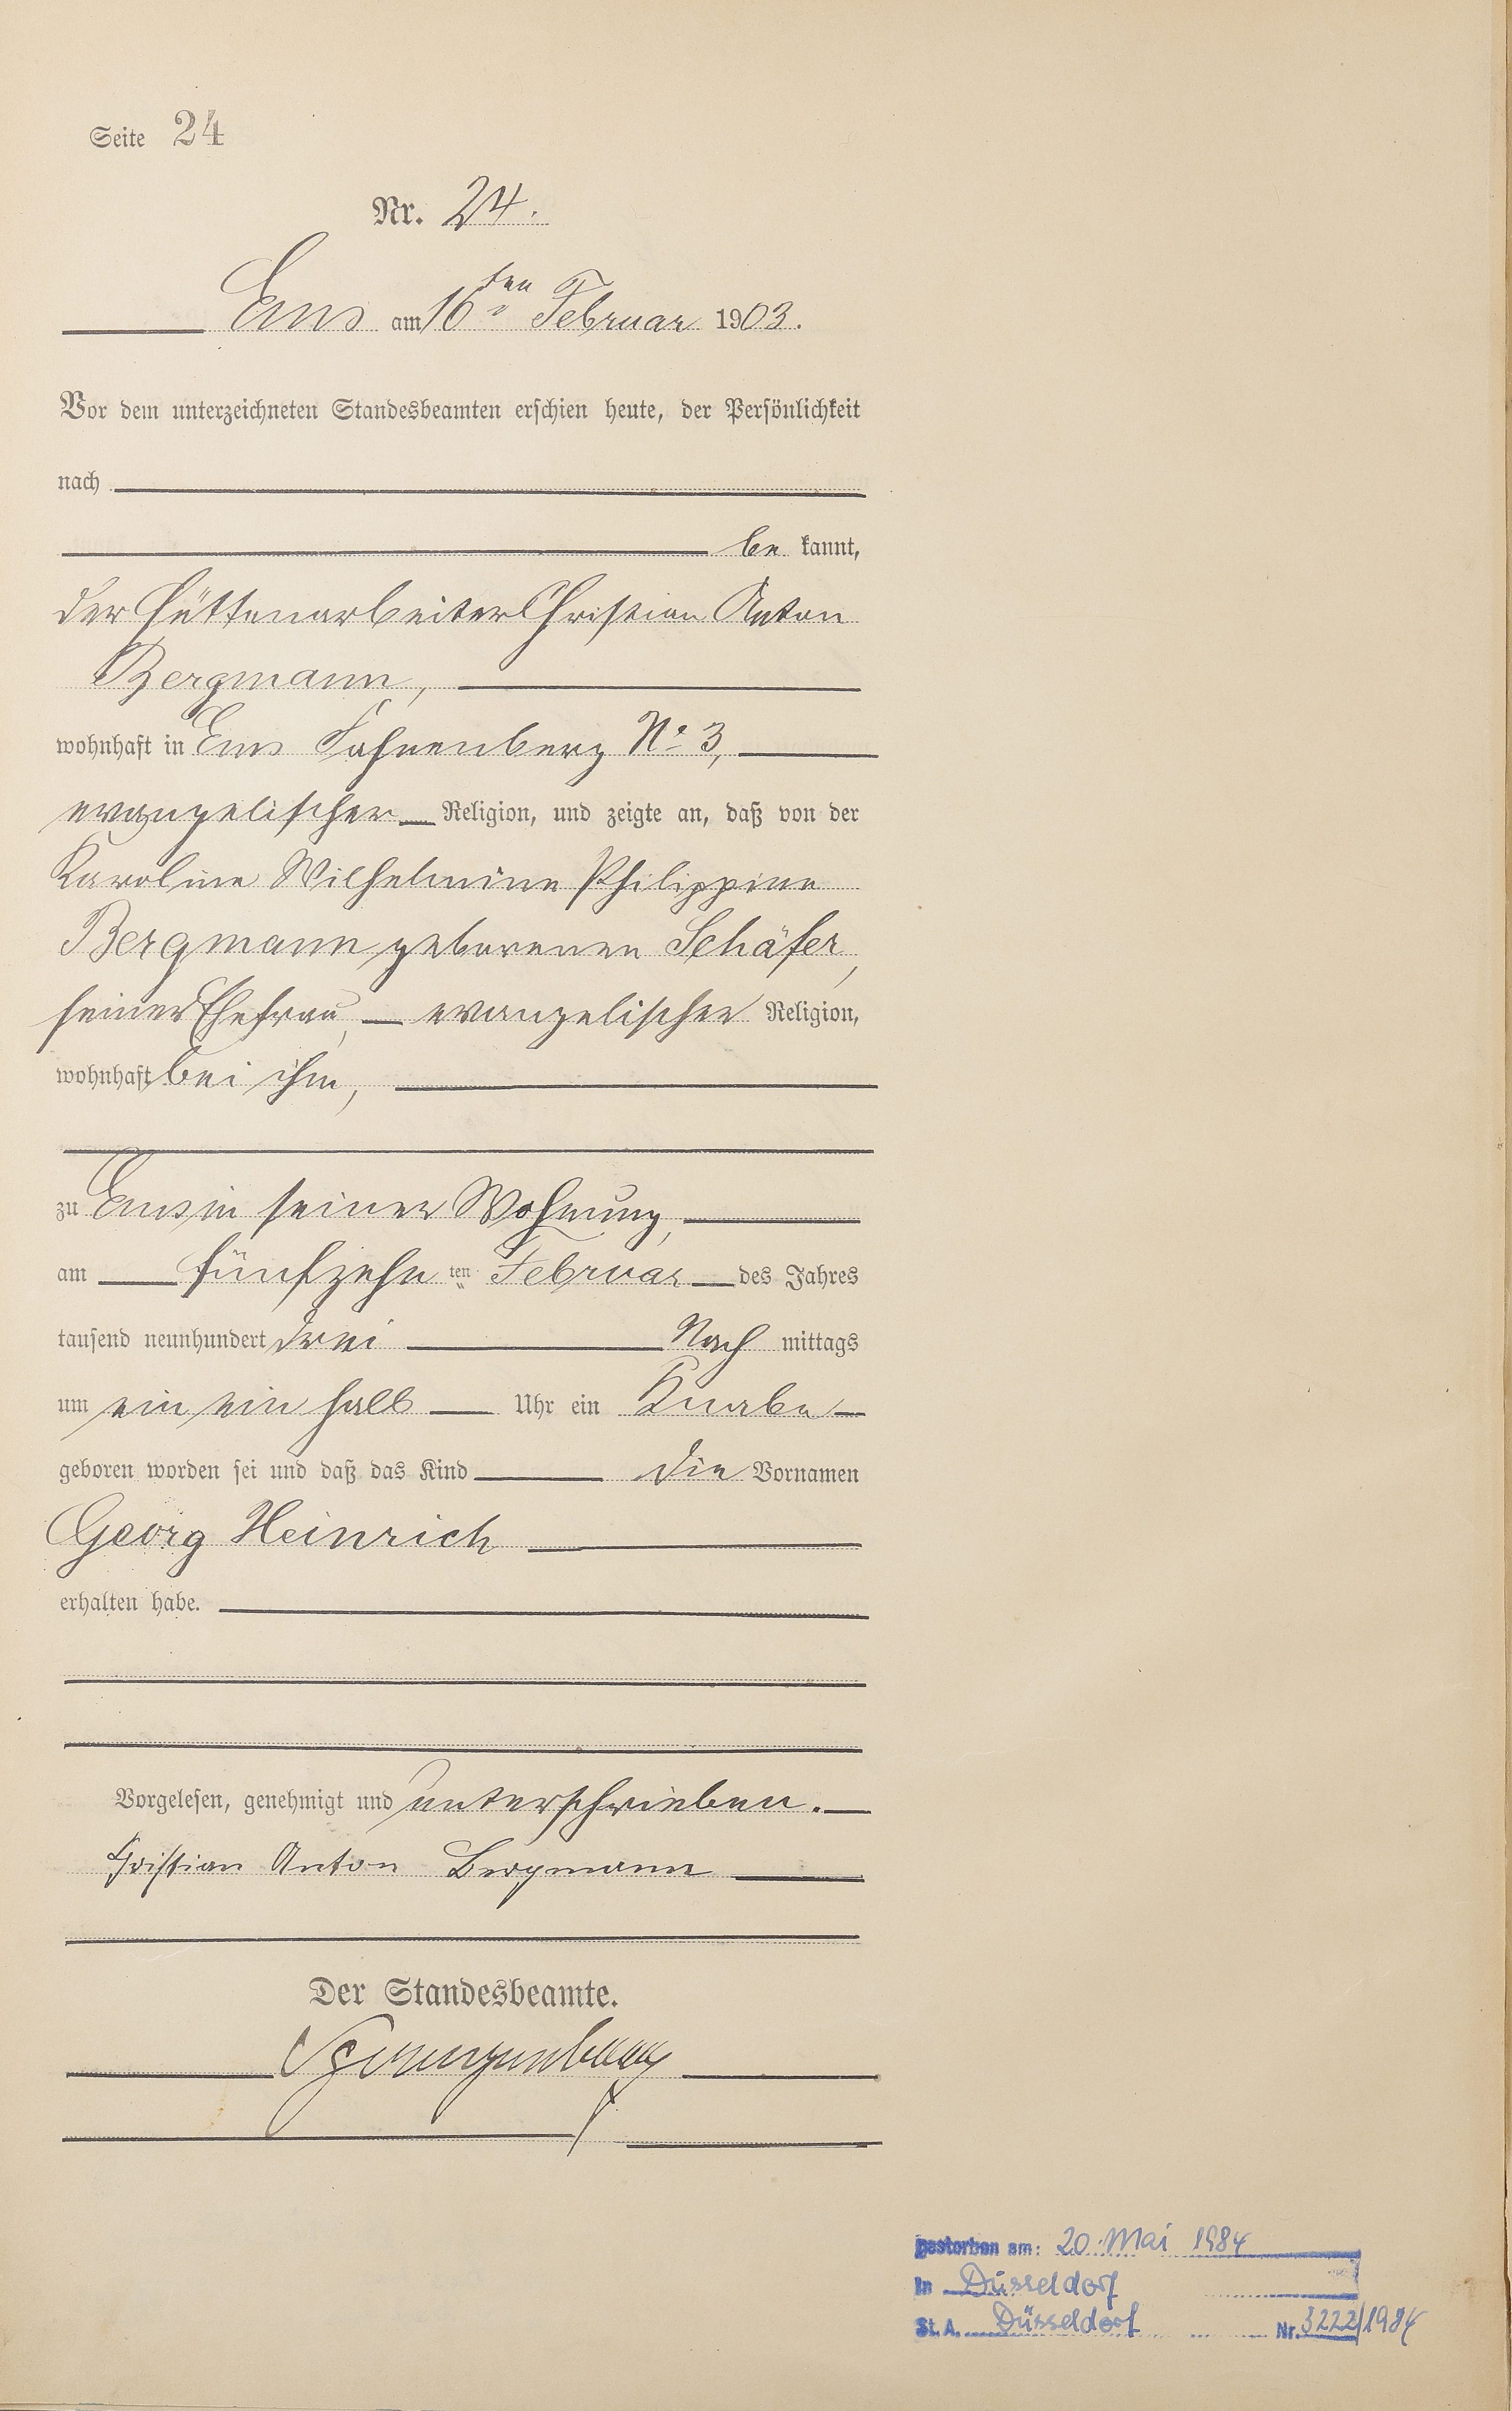 Seite 24
Nr. 24.
Ems am 16ten Februar 1903.
Vor dem unterzeichneten Standesbeamten erschien heute, der Persönlichkeit
nach
be kannt,
der Hüttenarbeiter Christian Anton
Bergmann,
wohnhaft in Ems Fahnenberg No 3,
evangelischer Religion, und zeigte an, daß von der
Karoline Wilhelmine Philippine
Bergmann geborenen Schäfer,
seiner Ehefrau, evangelischer Religion,
wohnhaft bei ihm,
zu Ems in seiner Wohnung,
am fünfzehn ten Februar des Jahres
tausend neunhundert drei Nach mittags
um ein ein halb Uhr ein Knabe
geboren worden sei und daß das Kind die Vornamen
Georg Heinrich
erhalten habe.
Vorgelesen, genehmigt und unterschrieben.
Christian Anton Bergmann
Der Standesbeamte.
gestorben am: 20. Mai 1984
in Düsseldorf
St. A. Düsseldorf Nr. 3222/1984